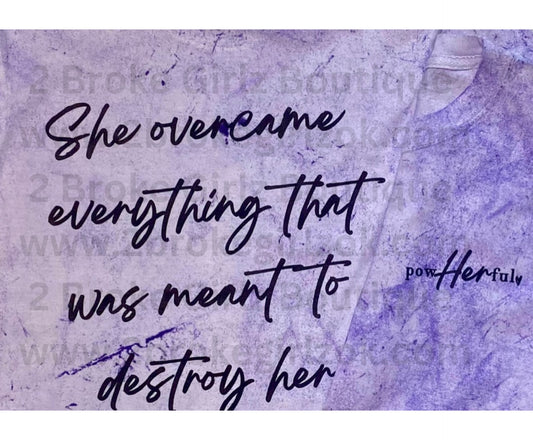 2 Broke Girlz Boutique
She overcame
www.2brokegirlzok.com
2 Broke Girlz Boutique
everything that
www.2brokegirlzok.com
powHerful
was meant to
2 Broke Girlz Boutique
www.2brokegirlzok.com
destroy her